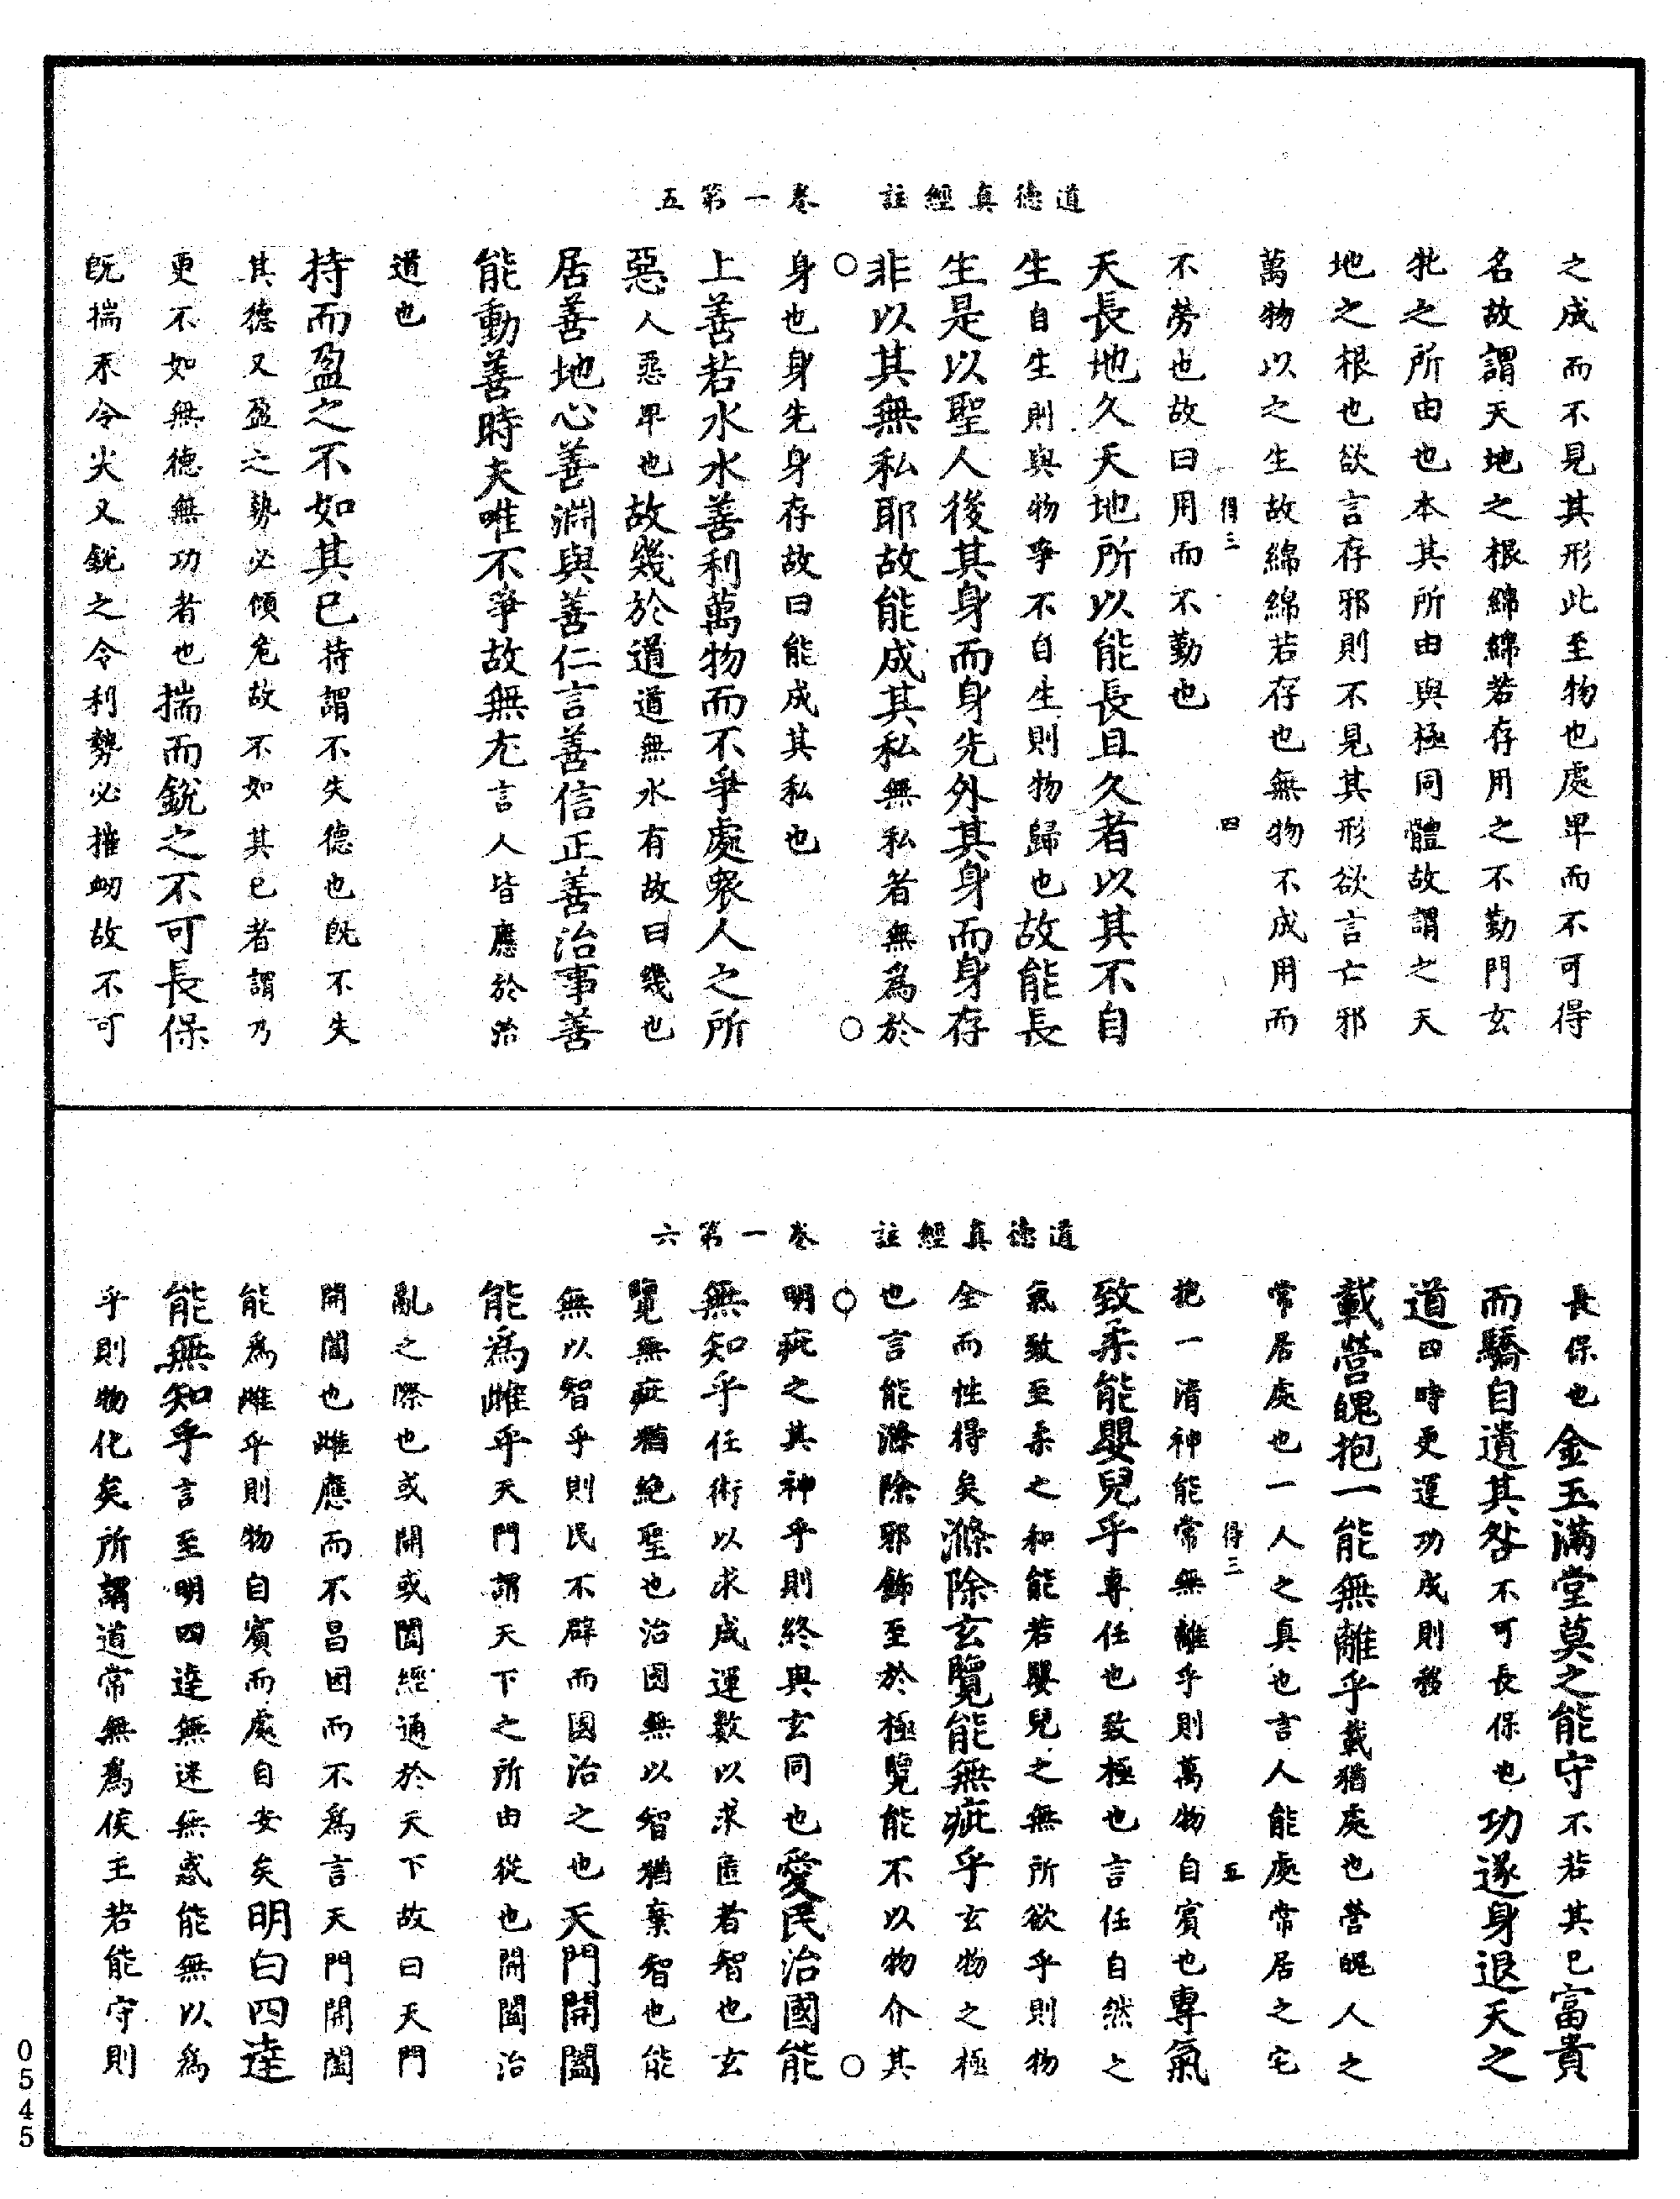 道德真經註　卷一第五
之成而不見其形此至物也處卑而不可得
名故謂天地之根綿綿若存用之不勤門玄
牝之所由也本其所由與極同體故謂之天
地之根也欲言存邪則不見其形欲言亡邪
萬物以之生故綿綿若存也無物不成用而
得三　四
不勞也故曰用而不勤也
天長地久天地所以能長且久者以其不自
生自生則與物爭不自生則物歸也故能長
生是以聖人後其身而身先外其身而身存
非以其無私耶故能成其私無私者無為於
○　○
身也身先身存故曰能成其私也
上善若水水善利萬物而不爭處衆人之所
惡人惡卑也故幾於道道無水有故曰幾也
居善地心善淵與善仁言善信正善治事善
能動善時夫唯不爭故無尤言人皆應於治
道也
持而盈之不如其已持謂不失德也既不失
其德又盈之勢必傾危故不如其已者謂乃
更不如無德無功者也揣而銳之不可長保
既揣末令尖又銳之令利勢必摧衂故不可
道德真經註　卷一第六
長保也金玉滿堂莫之能守不若其已富貴
而驕自遺其咎不可長保也功遂身退天之
道四時更運功成則移
載營魄抱一能無離乎載猶處也營魄人之
常居處也一人之真也言人能處常居之宅
得三　五
抱一清神能常無離乎則萬物自賓也專氣
致柔能嬰兒乎專任也致極也言任自然之
氣致至柔之和能若嬰兒之無所欲乎則物
全而性得矣滌除玄覽能無疵乎玄物之極
也言能滌除邪飾至於極覽能不以物介其
○　○
明疵之其神乎則終與玄同也愛民治國能
無知乎任術以求成運數以求匿者智也玄
覽無疵猶絕聖也治國無以智猶棄智也能
無以智乎則民不辟而國治之也天門開闔
能為雌乎天門謂天下之所由從也開闔治
亂之際也或開或闔經通於天下故曰天門
開闔也雌應而不昌因而不為言天門開闔
能為雌乎則物自賓而處自安矣明白四達
能無知乎言至明四達無迷無惑能無以為
乎則物化矣所謂道常無為侯王若能守則
0545